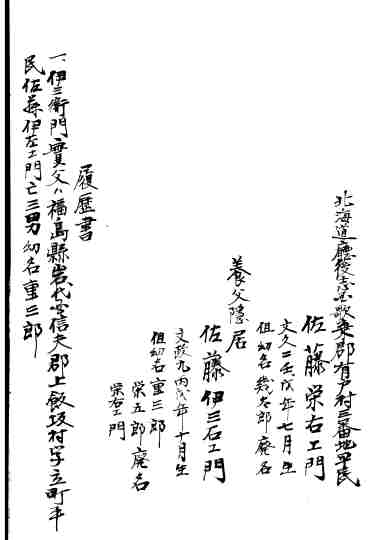 北海道廳後志國歌棄郡有戸村三番地平民
佐藤栄右エ門
文久二壬戌年七月生
但幼名幾太郎廃名
養父隠居
佐藤伊三右エ門
文政九丙戌年十月生
但幼名重三郎
栄五郎廃名
栄右エ門
履歴書
一、伊三衛門實父ハ福島縣岩代國信夫郡上飯坂村字立町平
民佐藤伊左エ門亡三男幼名重三郎